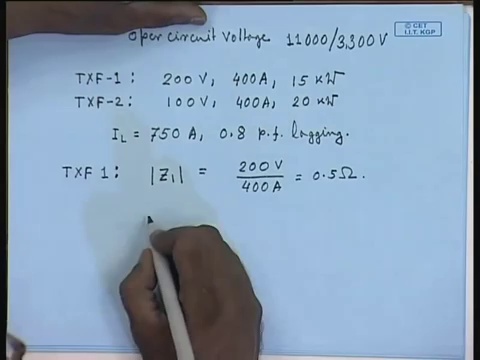 Open circuit Voltage 11000/3,300V
© CET
I.I.T. KGP
TXF-1: 200 V, 400A, 15 kW
TXF-2: 100 V, 400A, 20 kW
I_L = 750 A, 0.8 p.f. lagging.
TXF 1: |Z₁| = 200 V / 400A = 0.5Ω.